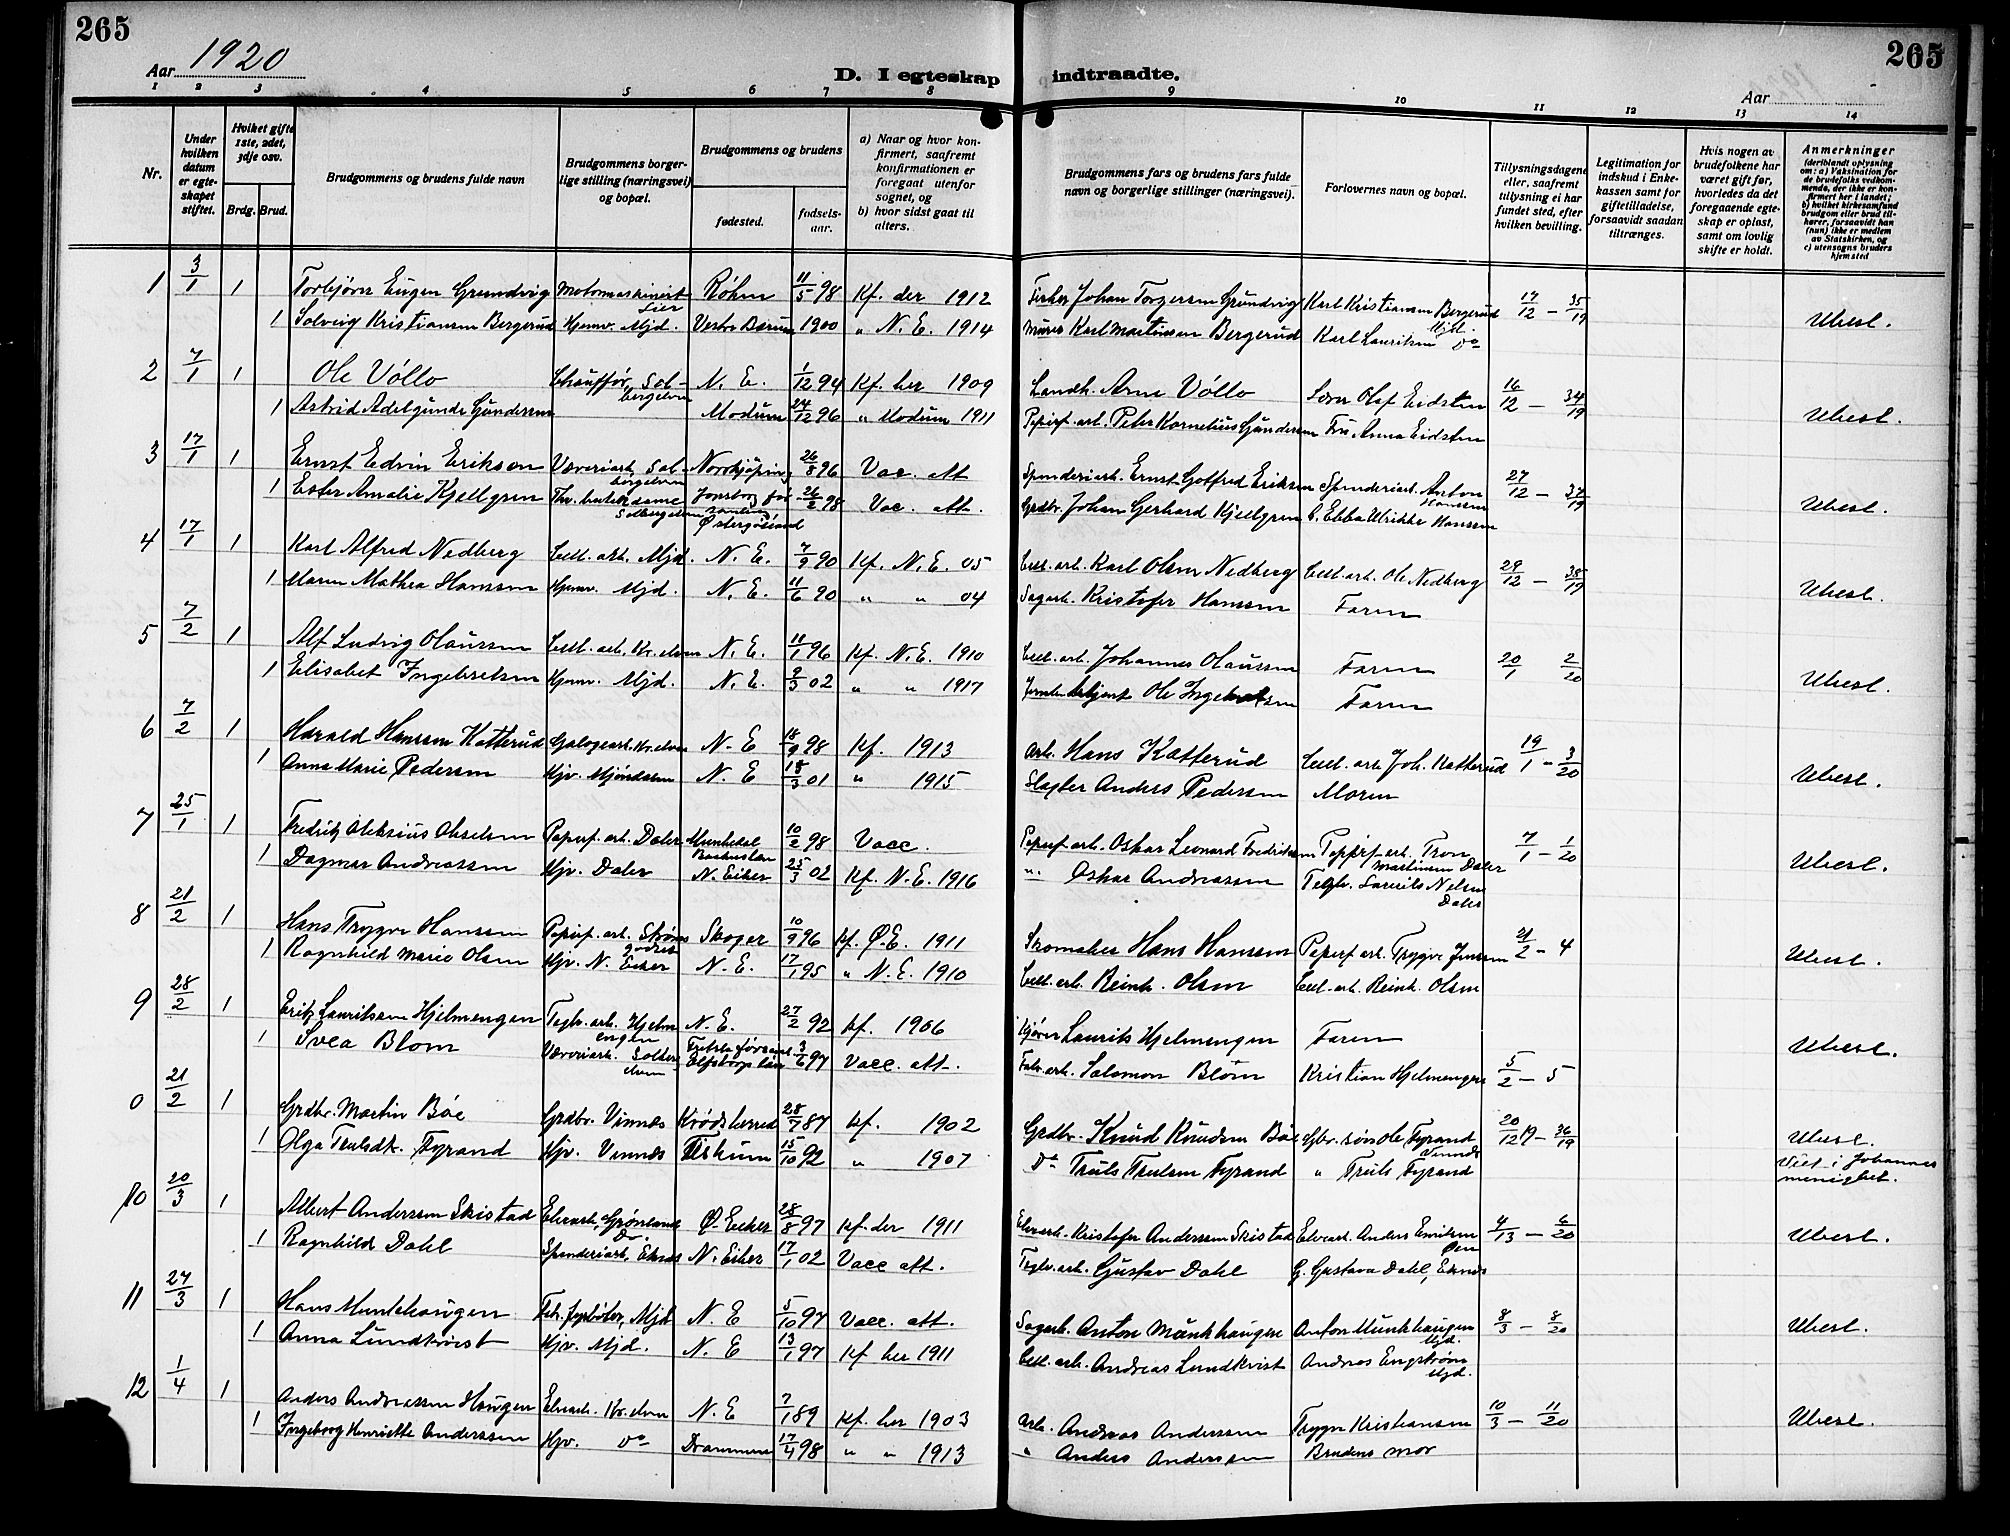 265
265
Aar 1920
D. I egteskap indtraadte.
Aar
1 2 3 4 5 6 7 8 9 10 11 12 13 14
Nr.
Under hvilken datum er egteskapet stiftet.
Hvilket gifte 1ste, 2det, 3dje osv.
Brdg. Brud.
Brudgommens og brudens fulde navn
Brudgommens borgerlige stilling (næringsvei) og bopæl.
Brudgommens og brudens
fødested.
fødselsaar.
a) Naar og hvor konfirmert, saafremt konfirmationen er foregaat utenfor sognet, og
b) hvor sidst gaat til alters.
Brudgommens fars og brudens fars fulde navn og borgerlige stillinger (næringsvei).
Forlovernes navn og bopæl.
Tillysningsdagene eller, saafremt tilysning ei har fundet sted, efter hvilken bevilling.
Legitimation for indskud i Enkekassen samt for giftetilladelse, forsaavidt saadan tiltrænges.
Hvis nogen av brudefolkene har været gift før, hvorledes da det foregaaende egteskap er opløst, samt om lovlig skifte er holdt.
Anmerkninger (deriblandt oplysning om: a) Vaksination for de brudefolks vedkommende, der ikke er konfirmert her i landet; b) hvilket kirkesamfund brudgom eller brud tilhører, forsaavidt han (hun) ikke er medlem av Statskirken, og c) utensogns bruders hjemsted
1 3/1 1 Torbjørn Eugen Grundvig Motormaskinist Lier Røhm 11/5 98 Kf. der 1912 Fisker Johan Torgersen Grundvig Karl Kristiansen Bergerud Mjd. 17/12 – 35/19
1 Solveig Kristiansen Bergerud Hjemv. Mjd. Vestre Bærum 1900 " N. E. 1914 Murer Karl Martinsen Bergerud Karl Lauritsen do Ubesl.
2 7/1 1 Ole Vóllo Chauffør, Solbergelven N. E. 1/12 94 Kf. her 1909 Landh. Arne Vóllo Lærer Olaf Eidsten 16/12 – 34/19
1 Astrid Adelgunde Gundersen Modum 24/12 96 " Modum 1911 Papirf. arb. Peter Kornelius Gundersen Fru Anna Eidsten Ubesl.
3 17/1 1 Ernst Edvin Erikson Væveriarb. Solbergelven Norrkjöping 26/8 96 Vac. att Spinderiarb. Ernst Gotfred Erikson Spinderiarb. Anton Hanssen 27/12 – 37/19
1 Ester Amalie Kjellgren Solbergelven Østergötland 26/2 98 Vac. att. Grdbr. Johan Gerhard Kjellgren Ebba Ulrikke Hanssen Ubesl.
4 17/1 1 Karl Alfred Nedberg Cell. arb. Mjd. N. E. 7/9 90 Kf. N. E. 05 Cell. arb. Karl Olsen Nedberg Cell. arb. Ole Nedberg 29/12 – 38/19
1 Maren Mathea Hanssen Hjemv. Mjd. N. E. 11/6 90 " " 04 Sagarb. Kristofer Hanssen Faren Ubesl.
5 7/2 1 Alf Ludvig Olaussen Cell. arb. Kr. elven N. E. 11/1 96 Kf. N. E. 1910 Cell. arb. Johannes Olaussen Faren 20/1 2/20
1 Elisabet Ingebretsen Hjemv. Mjd. N. E. 9/3 02 " " 1917 Ole Ingebretsen Faren Ubesl.
6 7/2 1 Harald Hanssen Katterud Galogearb. Kr. elven N. E 18/9 98 Kf. 1913 Arb. Hans Katterud Cell. arb. Joh. Katterud 19/1 – 3/20
1 Anna Marie Pedersen Hjv. Mjöndalen N. E 18/3 01 " 1915 Slagter Anders Pedersen Moren Ubesl.
7 25/1 1 Fredrik Aleksius Akselsen Papirf. arb. Daler Munkedal Baahuslen 10/2 98 Vacc. Papirf. arb. Oskar Leonard Fredriksen Papirf. arb. Tron Martinsen Daler 7/1 – 1/20
1 Dagmar Andreassen Hjv. Daler N. Eiker 25/3 02 Kf. N. E. 1916 " Oskar Andreassen Teglv. Laurits Nelsen Daler Ubesl.
8 21/2 1 Hans Trygve Hanssen Papirf. arb. Strømsgodset Skoger 10/9 96 Kf. Ø. E. 1911 Skomaker Hans Hanssen Papirf. arb. Trygve Jenssen 21/2 – 4
1 Ragnhild Marie Olsen Hjv. N. Eiker N. E. 17/1 95 " N. E. 1910 Cell. arb. Reinh. Olsen Cell. arb. Reinh. Olsen Ubesl.
9 28/2 1 Erik Lauritsen Hjelmengen Teglv. arb. Hjelmengen N. E. 27/2 92 Kf. 1906 Kjører Laurits Hjelmengen Faren
1 Svea Blom Væveriarb. Solbergelven Elfsborgs län 3/6 97 Vacc. att. Fabr. arb. Salomon Blom Kristian Hjelmengen 5/2 – 5 Ubesl.
0 21/2 1 Grdbr. Martin Bóe Grdbr. Vinnæs Krødsherred 28/7 87 Kf. 1902 Grdbr. Knud Knudsen Bóe Gbr. søn Ole Fyrand Vinnæs 20/12 19 – 36/19 Ubesl.
1 Olga Trulsdt. Fyrand Hjv. Vinnæs Fiskum 15/10 92 " 1907 Do Truls Trulsen Fyrand " Truls Fyrand Viet i Johannes menighet.
10 20/3 1 Albert Anderssen Skistad Elvearb., Grønland Dr. Ø. Eiker 28/8 97 Kf. der 1911 Elvearb. Kristofer Anderssen Skistad Elvearb. Anders Emilsen Øen 4/13 – 6/20
1 Ragnhild Dahl Spinderiarb., Eknes N. Eiker 17/1 02 Vacc att. Teglv. arb. Gustav Dahl G. Gustava Dahl, Eknes Ubesl.
11 27/3 1 Hans Munkhaugen Fabr. fyrbøter, Mjd N. E 5/10 97 Vacc. att. Sagarb. Anton Munkhaugen Anton Munkhaugen Mjd. 8/3 – 8/20
1 Anna Lundkvist Hjv. Mjd. N. E 13/1 97 Kf her 1911 Cell. arb. Andreas Lundkvist Andreas Engstrøm Mjd. Ubesl.
12 1/4 1 Anders Andreassen Haugen Elvearb. Kr. elven N. E 7/1 89 Kf. her 1903 Arb. Andreas Anderssen Trygve Kristiansen 10/3 – 11/20
1 Ingeborg Henriette Anderssen Hjv. do Drammen 17/4 98 " " 1913 " Anders Anderssen Brudens mor Ubesl.